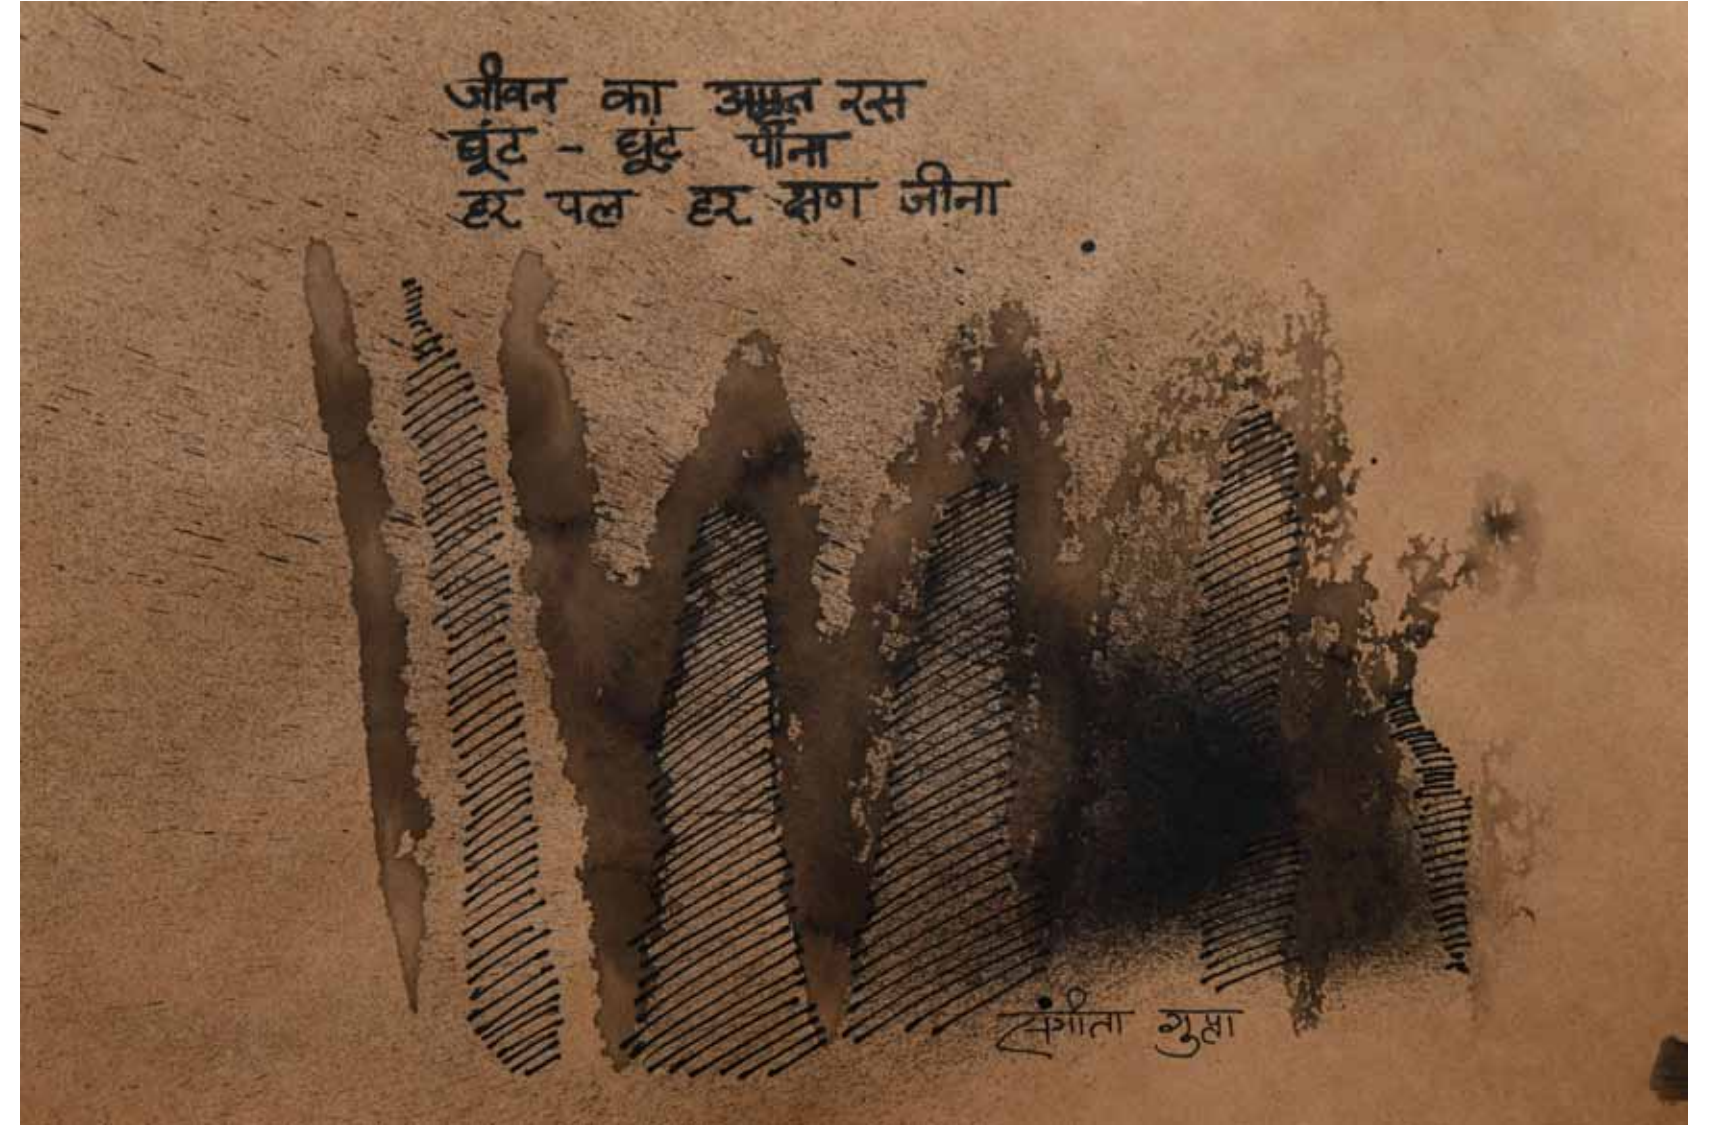 जीवन का अमृत रस
घूंट - घूंट पीना
हर पल हर क्षण जीना
संगीता गुप्ता